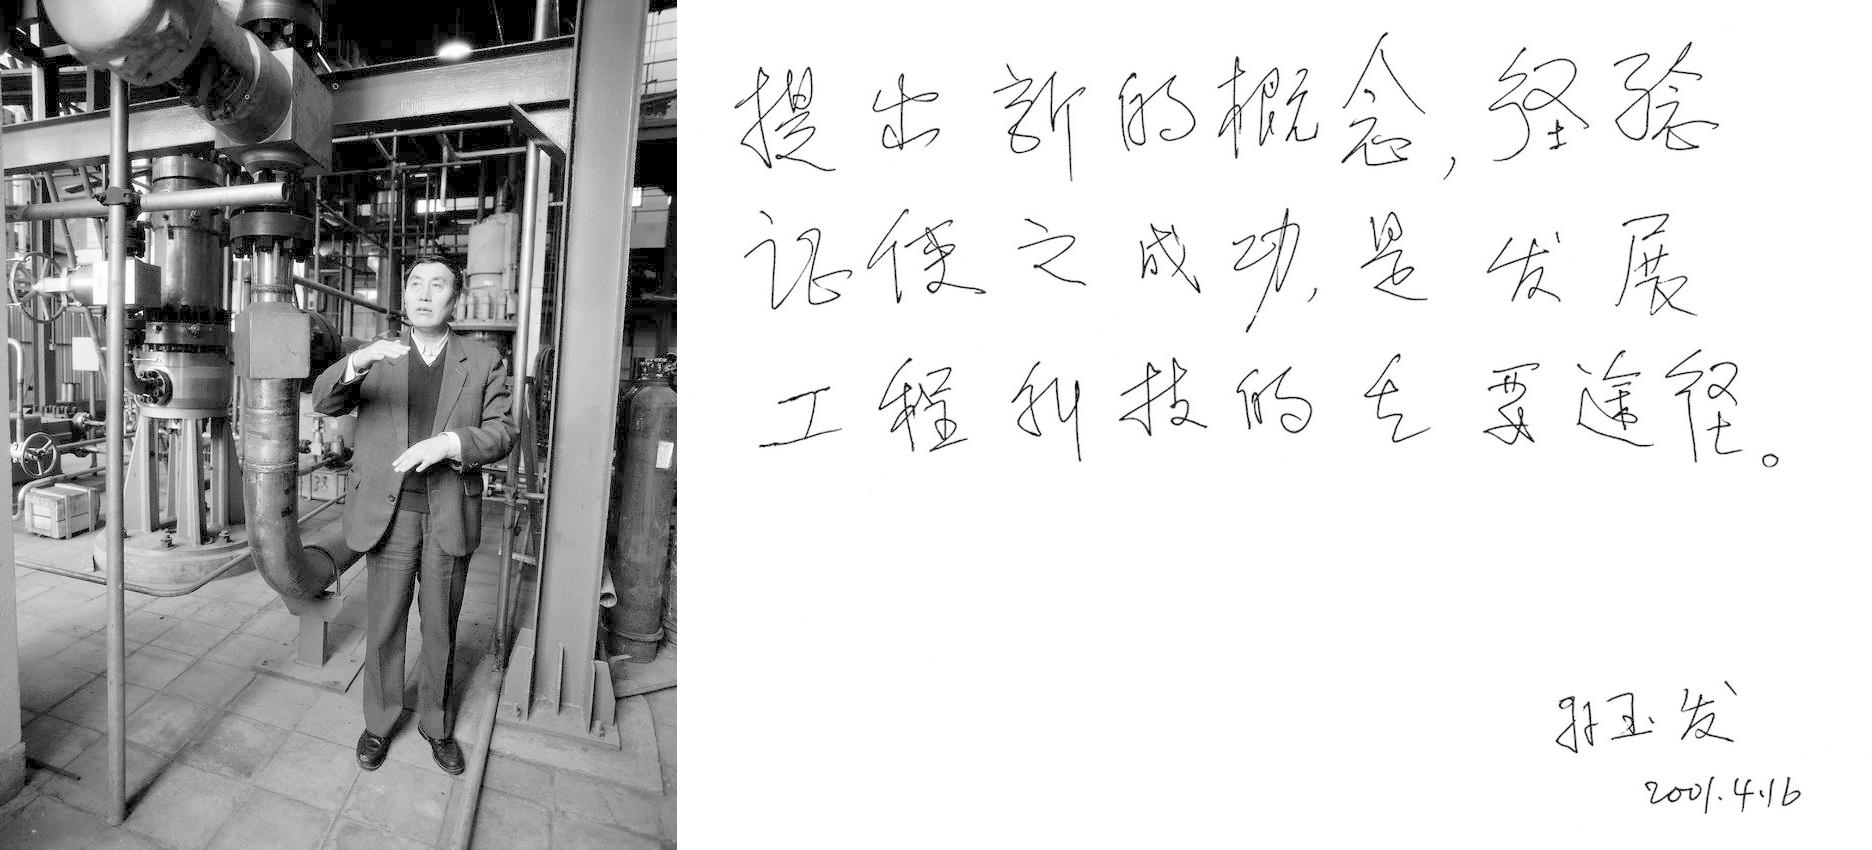 提出新的概念,经验
证使之成功,是发展
工程科技的主要途径。
孙玉发
2001.4.16
38